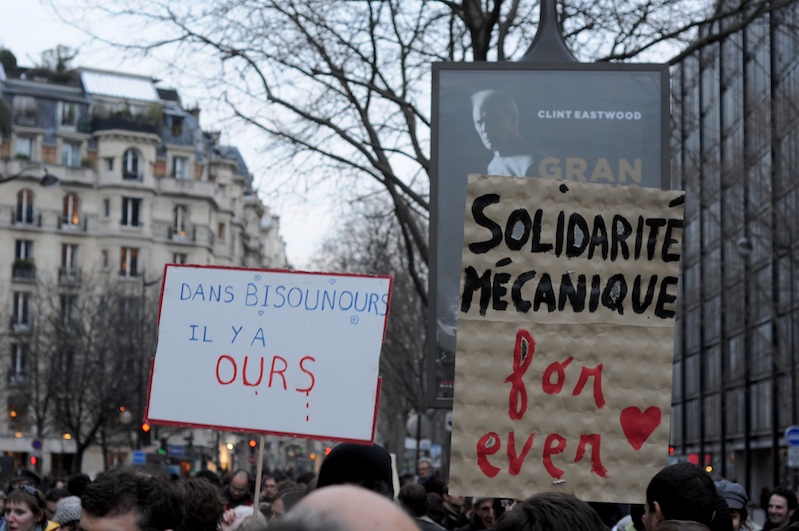 CLINT EASTWOOD
GRAN
SOLIDARITÉ
MÉCANIQUE
for
ever
DANS BISOUNOURS
IL Y A
OURS